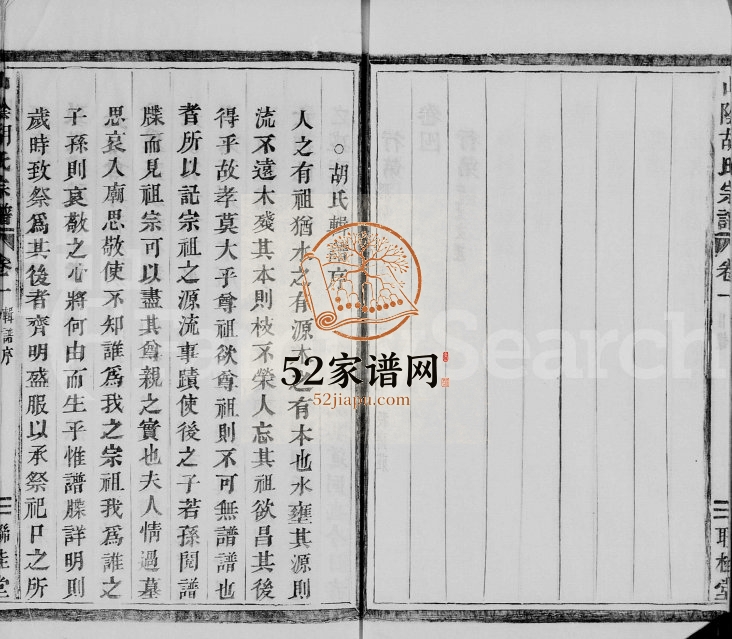 山陰胡氏宗譜
卷一
聯桂堂
胡氏輯譜序
人之有祖猶水之有源木之有本也水壅其源則
流不遠木殘其本則枝不榮人忘其祖欲昌其後
得乎故孝莫大乎尊祖欲尊祖則不可無譜譜也
者所以記宗祖之源流事蹟使後之子若孫閱譜
牒而見祖宗可以盡其尊親之實也夫人情過墓
思哀入廟思敬使不知誰爲我之宗祖我爲誰之
子孫則哀敬之心將何由而生乎惟譜牒詳明則
歲時致祭爲其後者齊明盛服以承祭祀口之所
山陰胡氏宗譜
卷一
輯譜序
一
聯桂堂
52家谱网
52jiapu.com